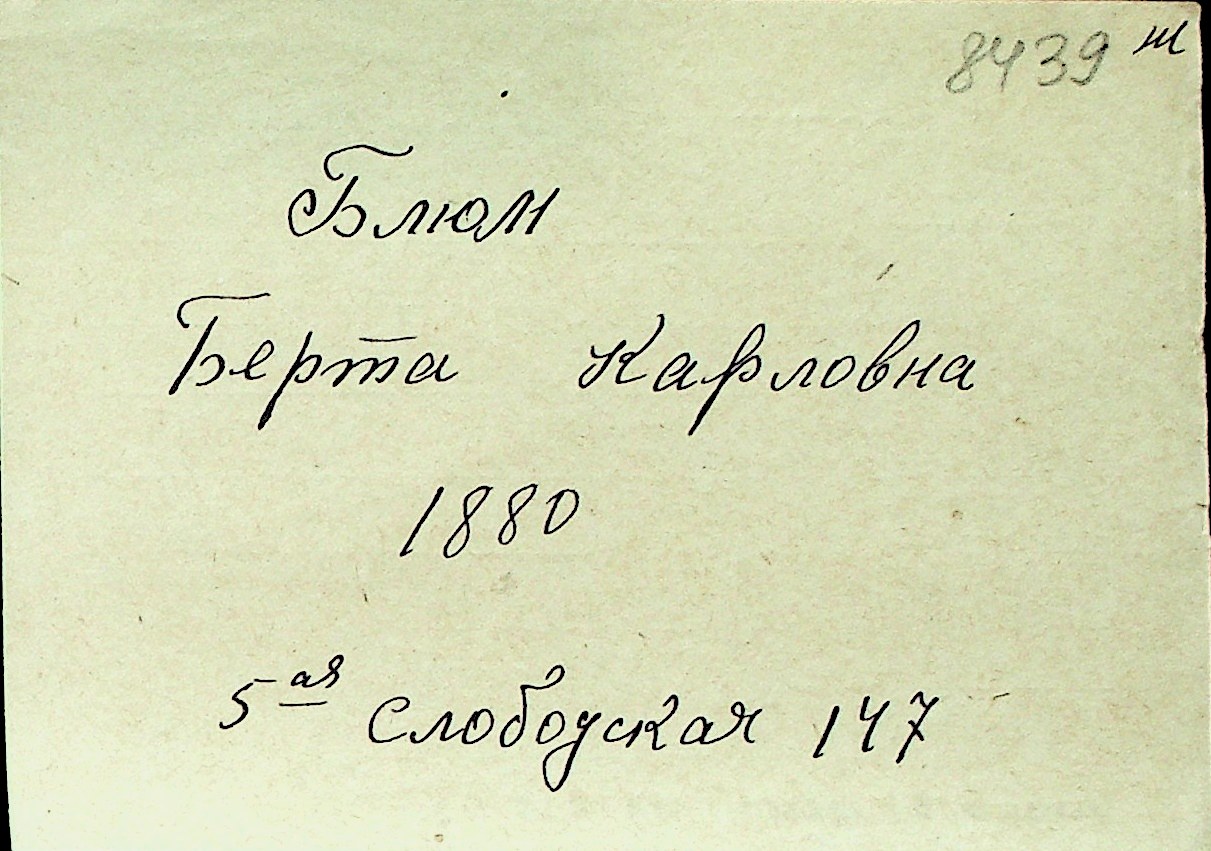 8439 ж
Блюм
Берта Карловна
1880
5ая Слободская 147